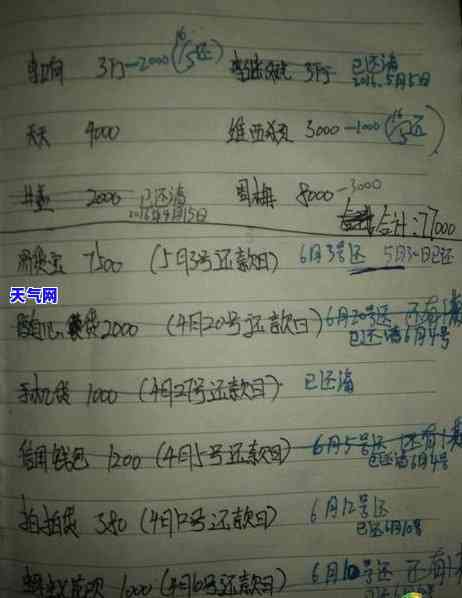 3万-2000 (16/5还) 3万 已还清
2016.5月5日
天天 4000 维西 3000-1000 (16/5还)
2000 已还清 周梅 8000-3000
2016年4月15日
合计:77000
7500 (5月3号还款日) 6月3号还 5月30日已还
天气网
2000 (4月20号还款日) 6月20号还 还有1
已还清6月4号
手机贷 1000 (4月27号还款日) 已还清
信用钱包 1200 (4月5号还款日) 6月5号还 还有1
已还清6月4号
拍拍贷 380 (4月12号还款日) 6月12号还
已还6月10号
1000 (4月10号还款日) 6月10号还 还有1